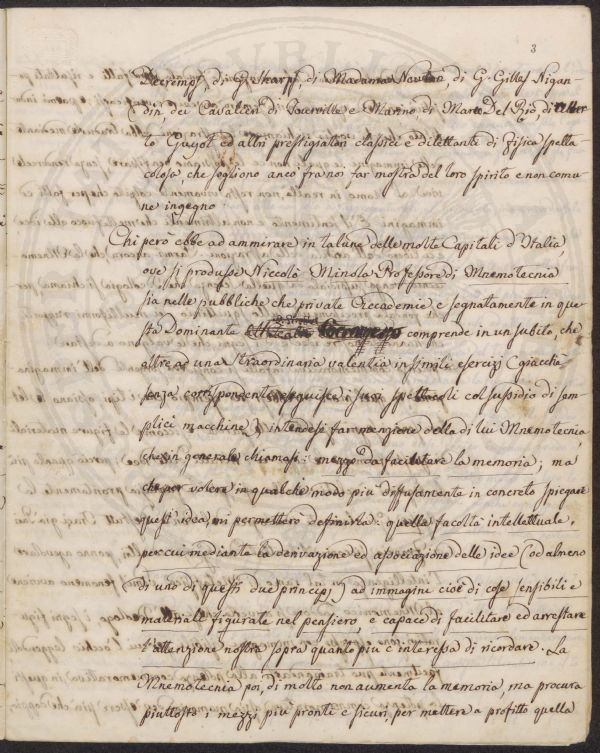 3
Decremps, di G. Sharpf, di Madama Newton, di G. Gilles Nigan-
din, dei Cavalieri di Tourville e Marino, di Marco Del Rio, di
to Guyot ed altri prestigiatori classici e dilettanti di fisica spetta
colosa che sogliono anco franoi far mostra del loro spirito e non comu
ne ingegno
Chi però ebbe ad ammirare in talune delle molte Capitali d'Italia,
ove si produsse Niccolò Minola Professore di Mnemotecnia
sia nelle pubbliche che private Accademie, e segnatamente in que-
sta Dominante comprende in un subito, che
oltre ad una straordinaria valentia in simili esercizj (giacchè
senza corrispondente eseguisce i suoi spettacoli col sussidio di sem
plici macchine) intendesi far menzione della di lui Mnemotecnia,
che in generale chiamasi: mezzo da facilitare la memoria; ma
che per volere in qualche modo più diffusamente in concreto spiegare
quest'idea, mi permetterò definirla: quella facoltà intellettuale,
per cui mediante la derivazione ed associazione delle idee (od almeno
di uno di questi due principj) ad immagini cioè di cose sensibili e
materiali figurate nel pensiero e capace di facilitare ed arrestare
l'attenzione nostra sopra quanto più c'interessa di ricordare. La
Mnemotecnia poi, di molto non aumenta la memoria, ma procura
piuttosto i mezzi più pronti e sicuri, per mettere a profitto quella